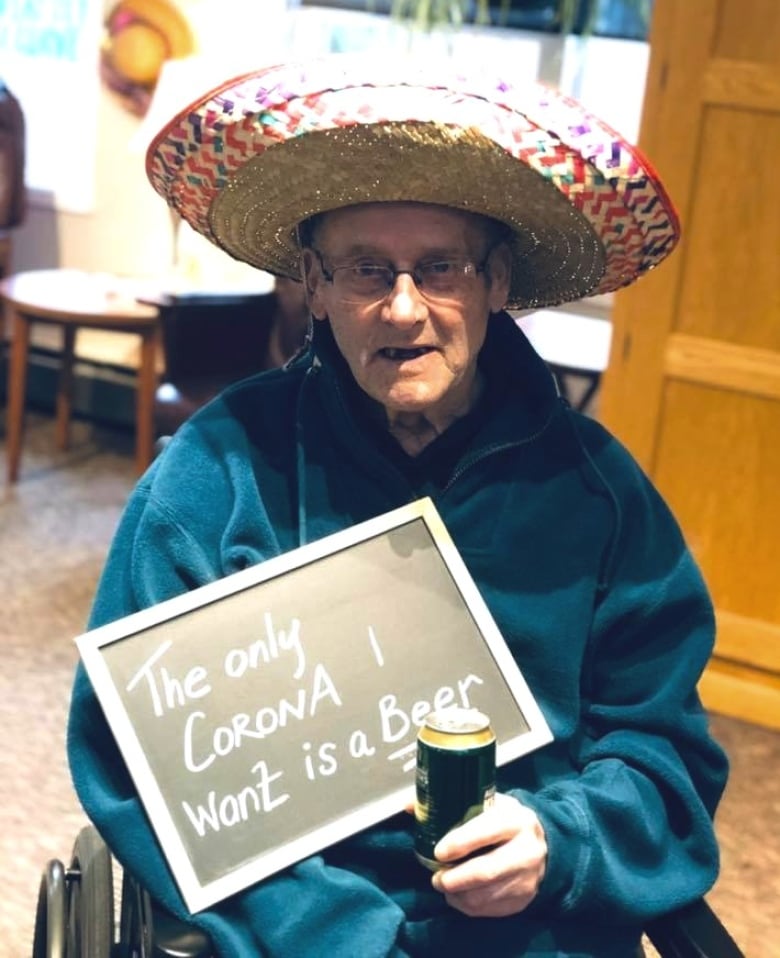 The only
CORONA I
Want is a Beer